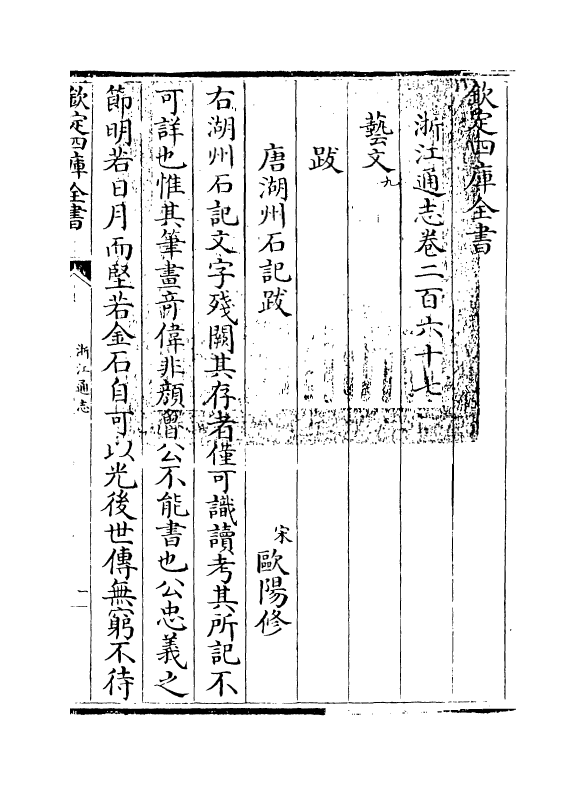 欽定四庫全書
浙江通志卷二百六十七
藝文九
跋
唐湖州石記跋　宋歐陽修
右湖州石記文字殘闕其存者僅可識讀考其所記不
可詳也惟其筆畫竒偉非顔魯公不能書也公忠義之
節明若日月而堅若金石自可以光後世傳無窮不待
欽定四庫全書
浙江通志